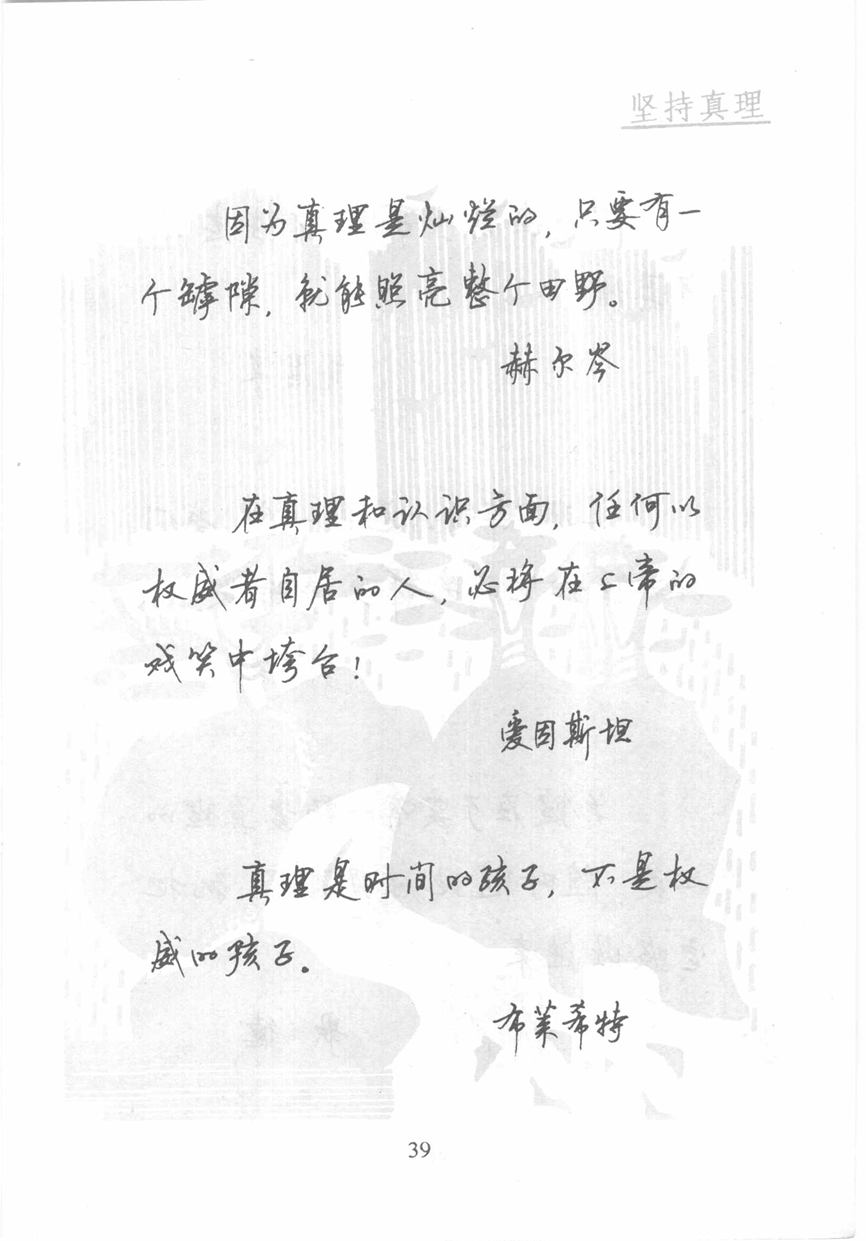 坚持真理
因为真理是灿烂的，只要有一
个罅隙，就能照亮整个田野。
赫尔岑
在真理和认识方面，任何以
权威者自居的人，必将在上帝的
戏笑中垮台！
爱因斯坦
真理是时间的孩子，不是权
威的孩子。
布莱希特
39